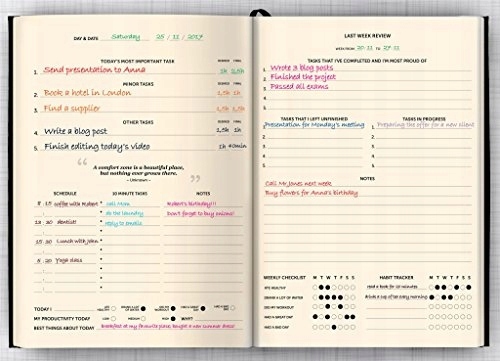 DAY & DATE Saturday 25 / 11 / 2017
TODAY'S MOST IMPORTANT TASK
1. Send presentation to Anna 1h 1,5h
MINOR TASKS
2. Book a hotel in London 1,5h 1h
3. Find a supplier 1,5h 1h
OTHER TASKS
4. Write a blog post 1,5h 1h
5. Finish editing today's video 1h 40min
“ A comfort zone is a beautiful place,
but nothing ever grows there. ”
- Unknown -
SCHEDULE 10 MINUTE TASKS NOTES
8 15 coffee with Robert call Mom Robert's birthday!!!
do the laundry Don't forget to buy onions!
13 30 dentist! reply to emails
15 30 Lunch with John
Yoga class
TODAY I
MY PRODUCTIVITY TODAY LOW MEDIUM HIGH WHY?
BEST THINGS ABOUT TODAY Breakfast at my favourite place, bought a new summer dress!
LAST WEEK REVIEW
WEEK FROM 20-11 TO 27-11
TASKS THAT I'VE COMPLETED AND I'M MOST PROUD OF
1. Wrote 3 blog posts
2. Finished the project
3. Passed all exams
TASKS THAT I LEFT UNFINISHED TASKS IN PROGRESS
1. Presentation for Monday's meeting 1. Preparing the offer for a new client
2. 2.
3. 3.
NOTES
Call Mr. Jones next week
Buy flowers for Anna's birthday
WEEKLY CHECKLIST M T W T F S S HABIT TRACKER M T W T F S S
ATE HEALTHY Read a book for 20 minutes
DRANK A LOT OF WATER Drink a cup of tea every morning
DID MY WORKOUT
HAD A GREAT DAY
HAD A BAD DAY